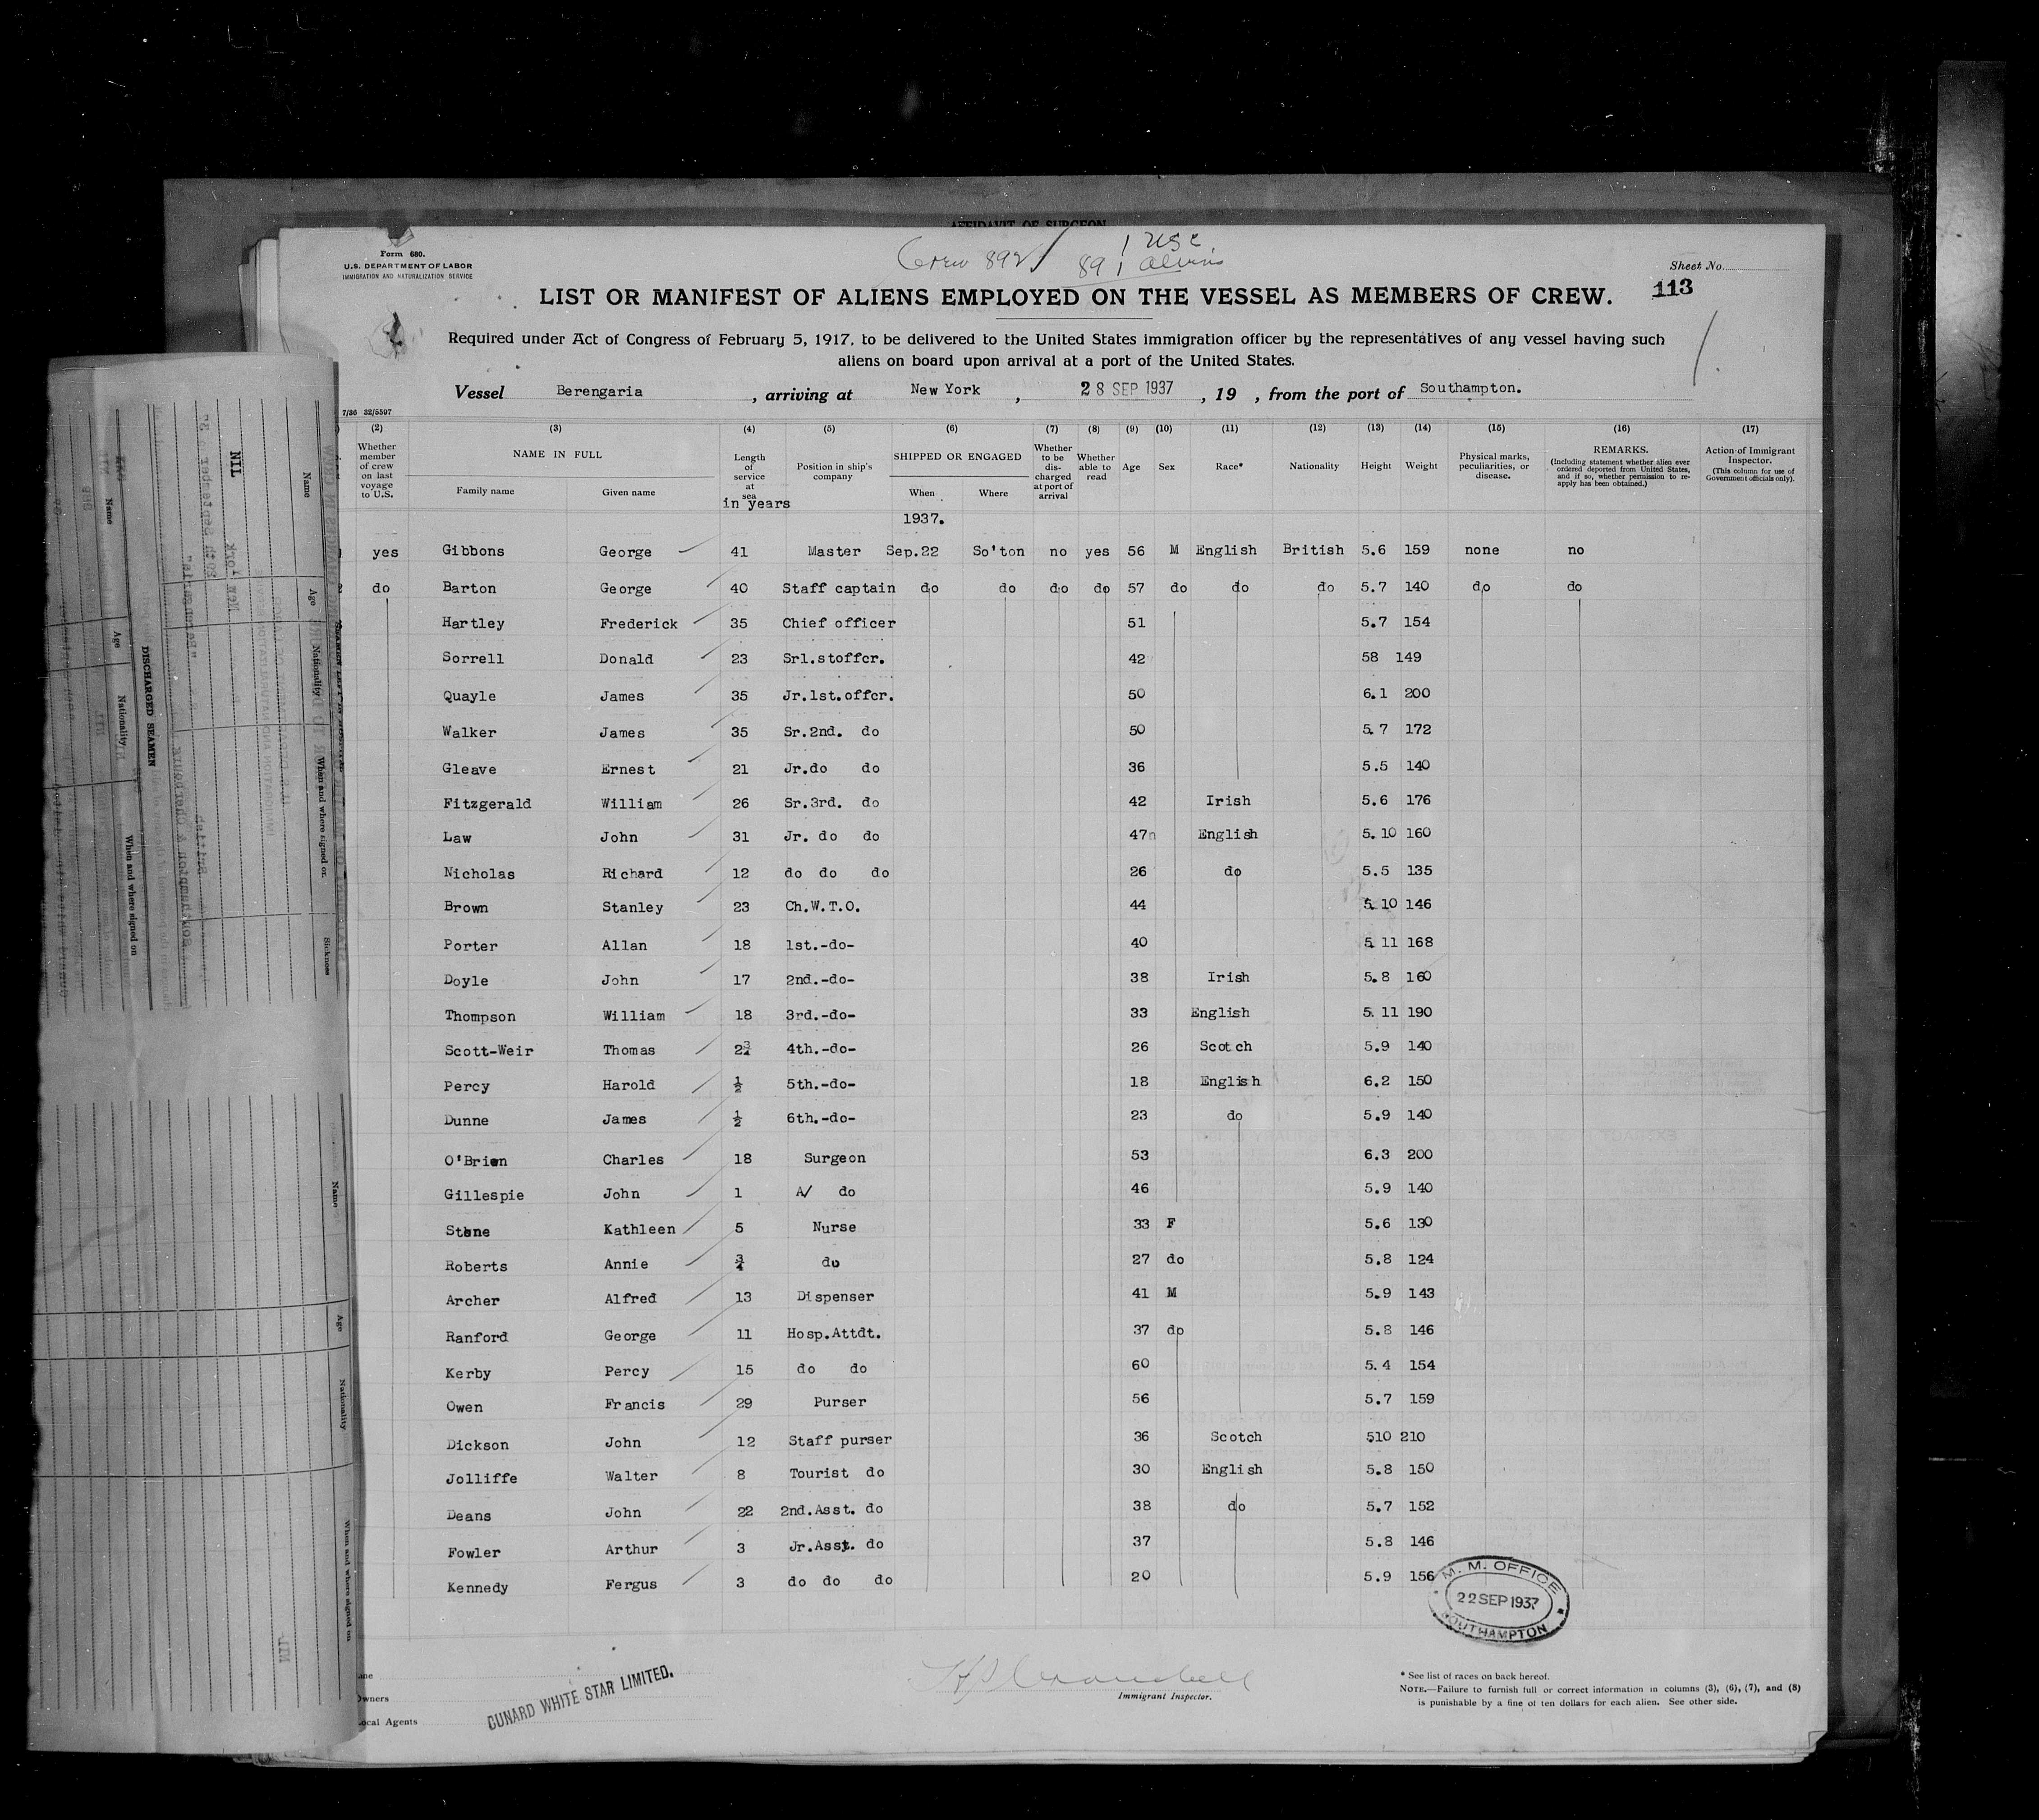 AFFIDAVIT OF SURGEON
Form 680.
U.S. DEPARTMENT OF LABOR
IMMIGRATION AND NATURALIZATION SERVICE
Crew 892 / 1 USC.
891 aliens
Sheet No.
113
LIST OR MANIFEST OF ALIENS EMPLOYED ON THE VESSEL AS MEMBERS OF CREW.
Required under Act of Congress of February 5, 1917, to be delivered to the United States immigration officer by the representatives of any vessel having such
aliens on board upon arrival at a port of the United States.
Vessel Berengaria , arriving at New York , 28 SEP 1937 , 19 , from the port of Southampton.
7/36 32/5597
(2) (3) (4) (5) (6) (7) (8) (9) (10) (11) (12) (13) (14) (15) (16) (17)
Whether member of crew on last voyage to U.S. NAME IN FULL Family name Given name Length of service at sea in years Position in ship's company SHIPPED OR ENGAGED When Where Whether to be discharged at port of arrival Whether able to read Age Sex Race* Nationality Height Weight Physical marks, peculiarities, or disease. REMARKS. (Including statement whether alien ever ordered deported from United States, and if so, whether permission to re-apply has been obtained.) Action of Immigrant Inspector. (This column for use of Government officials only).
1937.
yes Gibbons George 41 Master Sep.22 So'ton no yes 56 M English British 5.6 159 none no
do Barton George 40 Staff captain do do do do 57 do do do 5.7 140 do do
Hartley Frederick 35 Chief officer 51 5.7 154
Sorrell Donald 23 Sr1.stoffcr. 42 58 149
Quayle James 35 Jr.1st.offcr. 50 6.1 200
Walker James 35 Sr.2nd. do 50 5.7 172
Gleave Ernest 21 Jr.do do 36 5.5 140
Fitzgerald William 26 Sr.3rd. do 42 Irish 5.6 176
Law John 31 Jr. do do 47n English 5.10 160
Nicholas Richard 12 do do do 26 do 5.5 135
Brown Stanley 23 Ch.W.T.O. 44 5.10 146
Porter Allan 18 1st.-do- 40 5.11 168
Doyle John 17 2nd.-do- 38 Irish 5.8 160
Thompson William 18 3rd.-do- 33 English 5.11 190
Scott-Weir Thomas 2¾ 4th.-do- 26 Scotch 5.9 140
Percy Harold ½ 5th.-do- 18 English 6.2 150
Dunne James ½ 6th.-do- 23 do 5.9 140
O'Brien Charles 18 Surgeon 53 6.3 200
Gillespie John 1 A/ do 46 5.9 140
Stone Kathleen 5 Nurse 33 F 5.6 130
Roberts Annie ¾ do 27 do 5.8 124
Archer Alfred 13 Dispenser 41 M 5.9 143
Ranford George 11 Hosp.Attdt. 37 do 5.8 146
Kerby Percy 15 do do 60 5.4 154
Owen Francis 29 Purser 56 5.7 159
Dickson John 12 Staff purser 36 Scotch 510 210
Jolliffe Walter 8 Tourist do 30 English 5.8 150
Deans John 22 2nd.Asst. do 38 do 5.7 152
Fowler Arthur 3 Jr.Asst. do 37 5.8 146
Kennedy Fergus 3 do do do 20 5.9 156
M. M. OFFICE
22 SEP 1937
SOUTHAMPTON
Owners
Local Agents
CUNARD WHITE STAR LIMITED.
Immigrant Inspector.
* See list of races on back hereof.
NOTE.—Failure to furnish full or correct information in columns (3), (6), (7), and (8)
is punishable by a fine of ten dollars for each alien. See other side.
NIL
Name Age Nationality When and where signed on Sickness
DISCHARGED SEAMEN
Name Age Nationality When and where signed on
Name Age Nationality When and where signed on